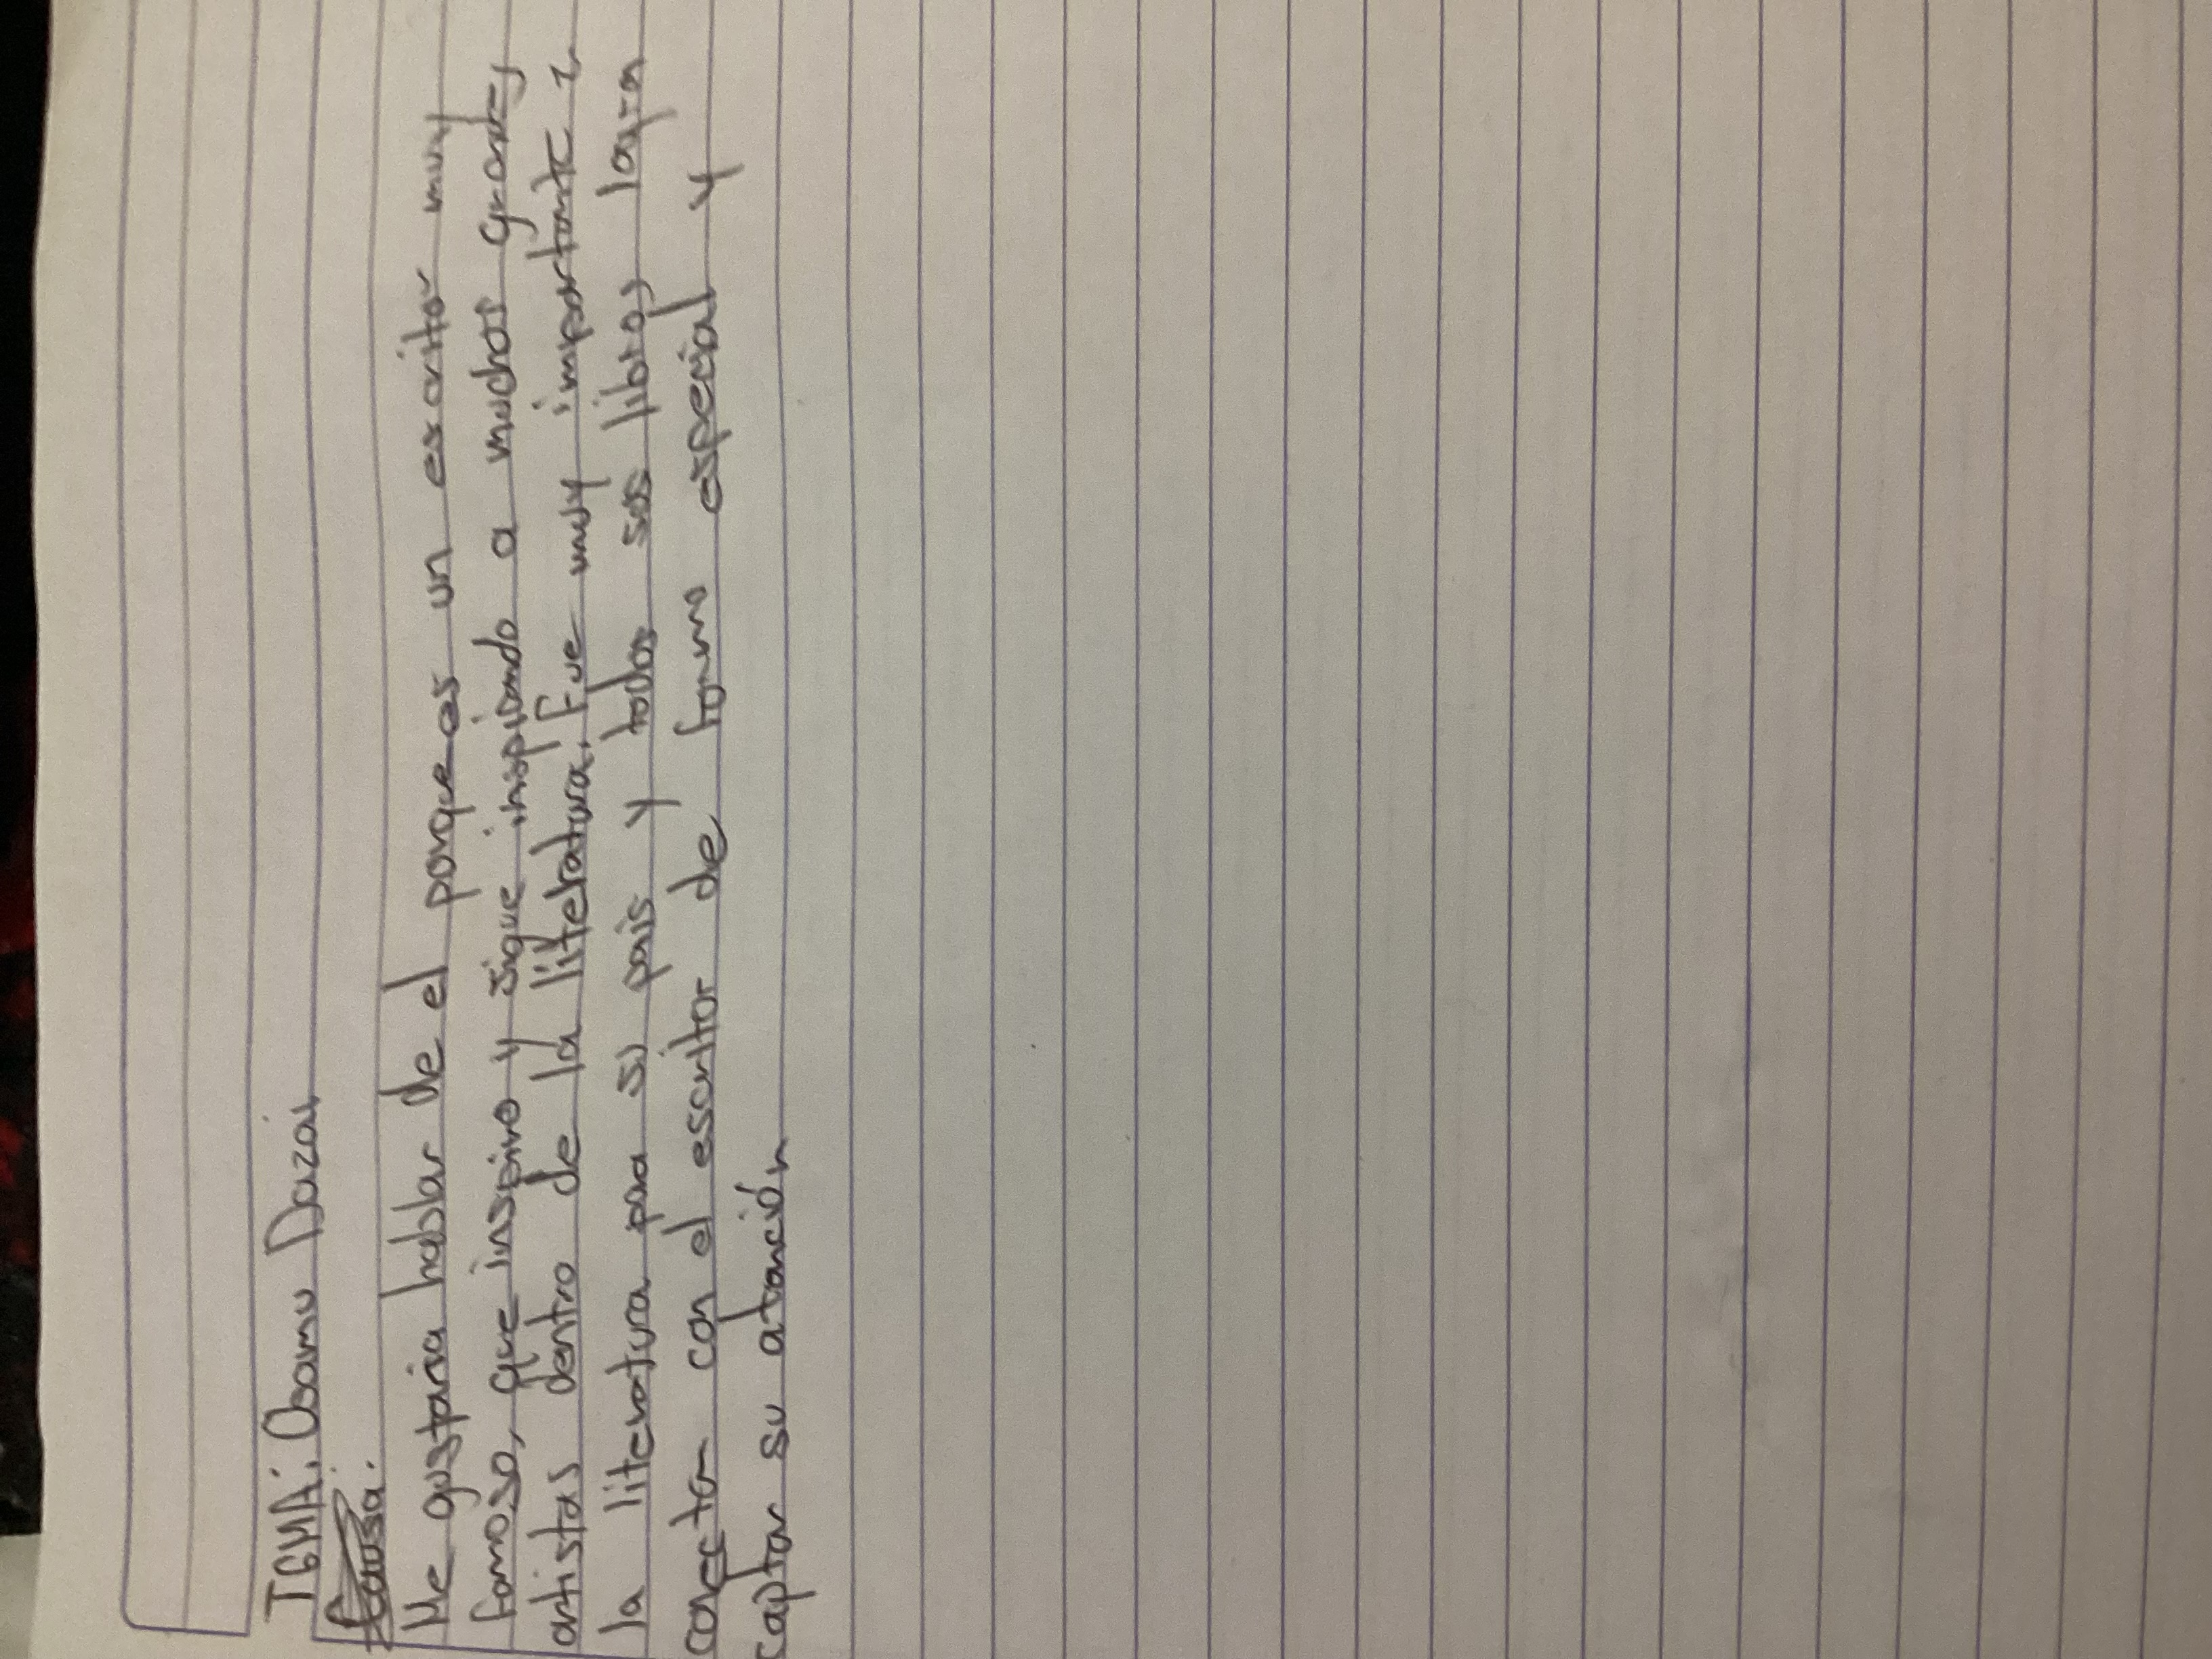 TEMA: Osamu Dazai
Causa:
Me gustaria hablar de el porque es un escritor muy
famoso, que inspiro y sigue inspiando a muchos grandes
artistas dentro de la litelratura. Fue muy importante
la literatura para si pais y todos sos libros logra
conectar con el escritor de forma especial y
captar su atención